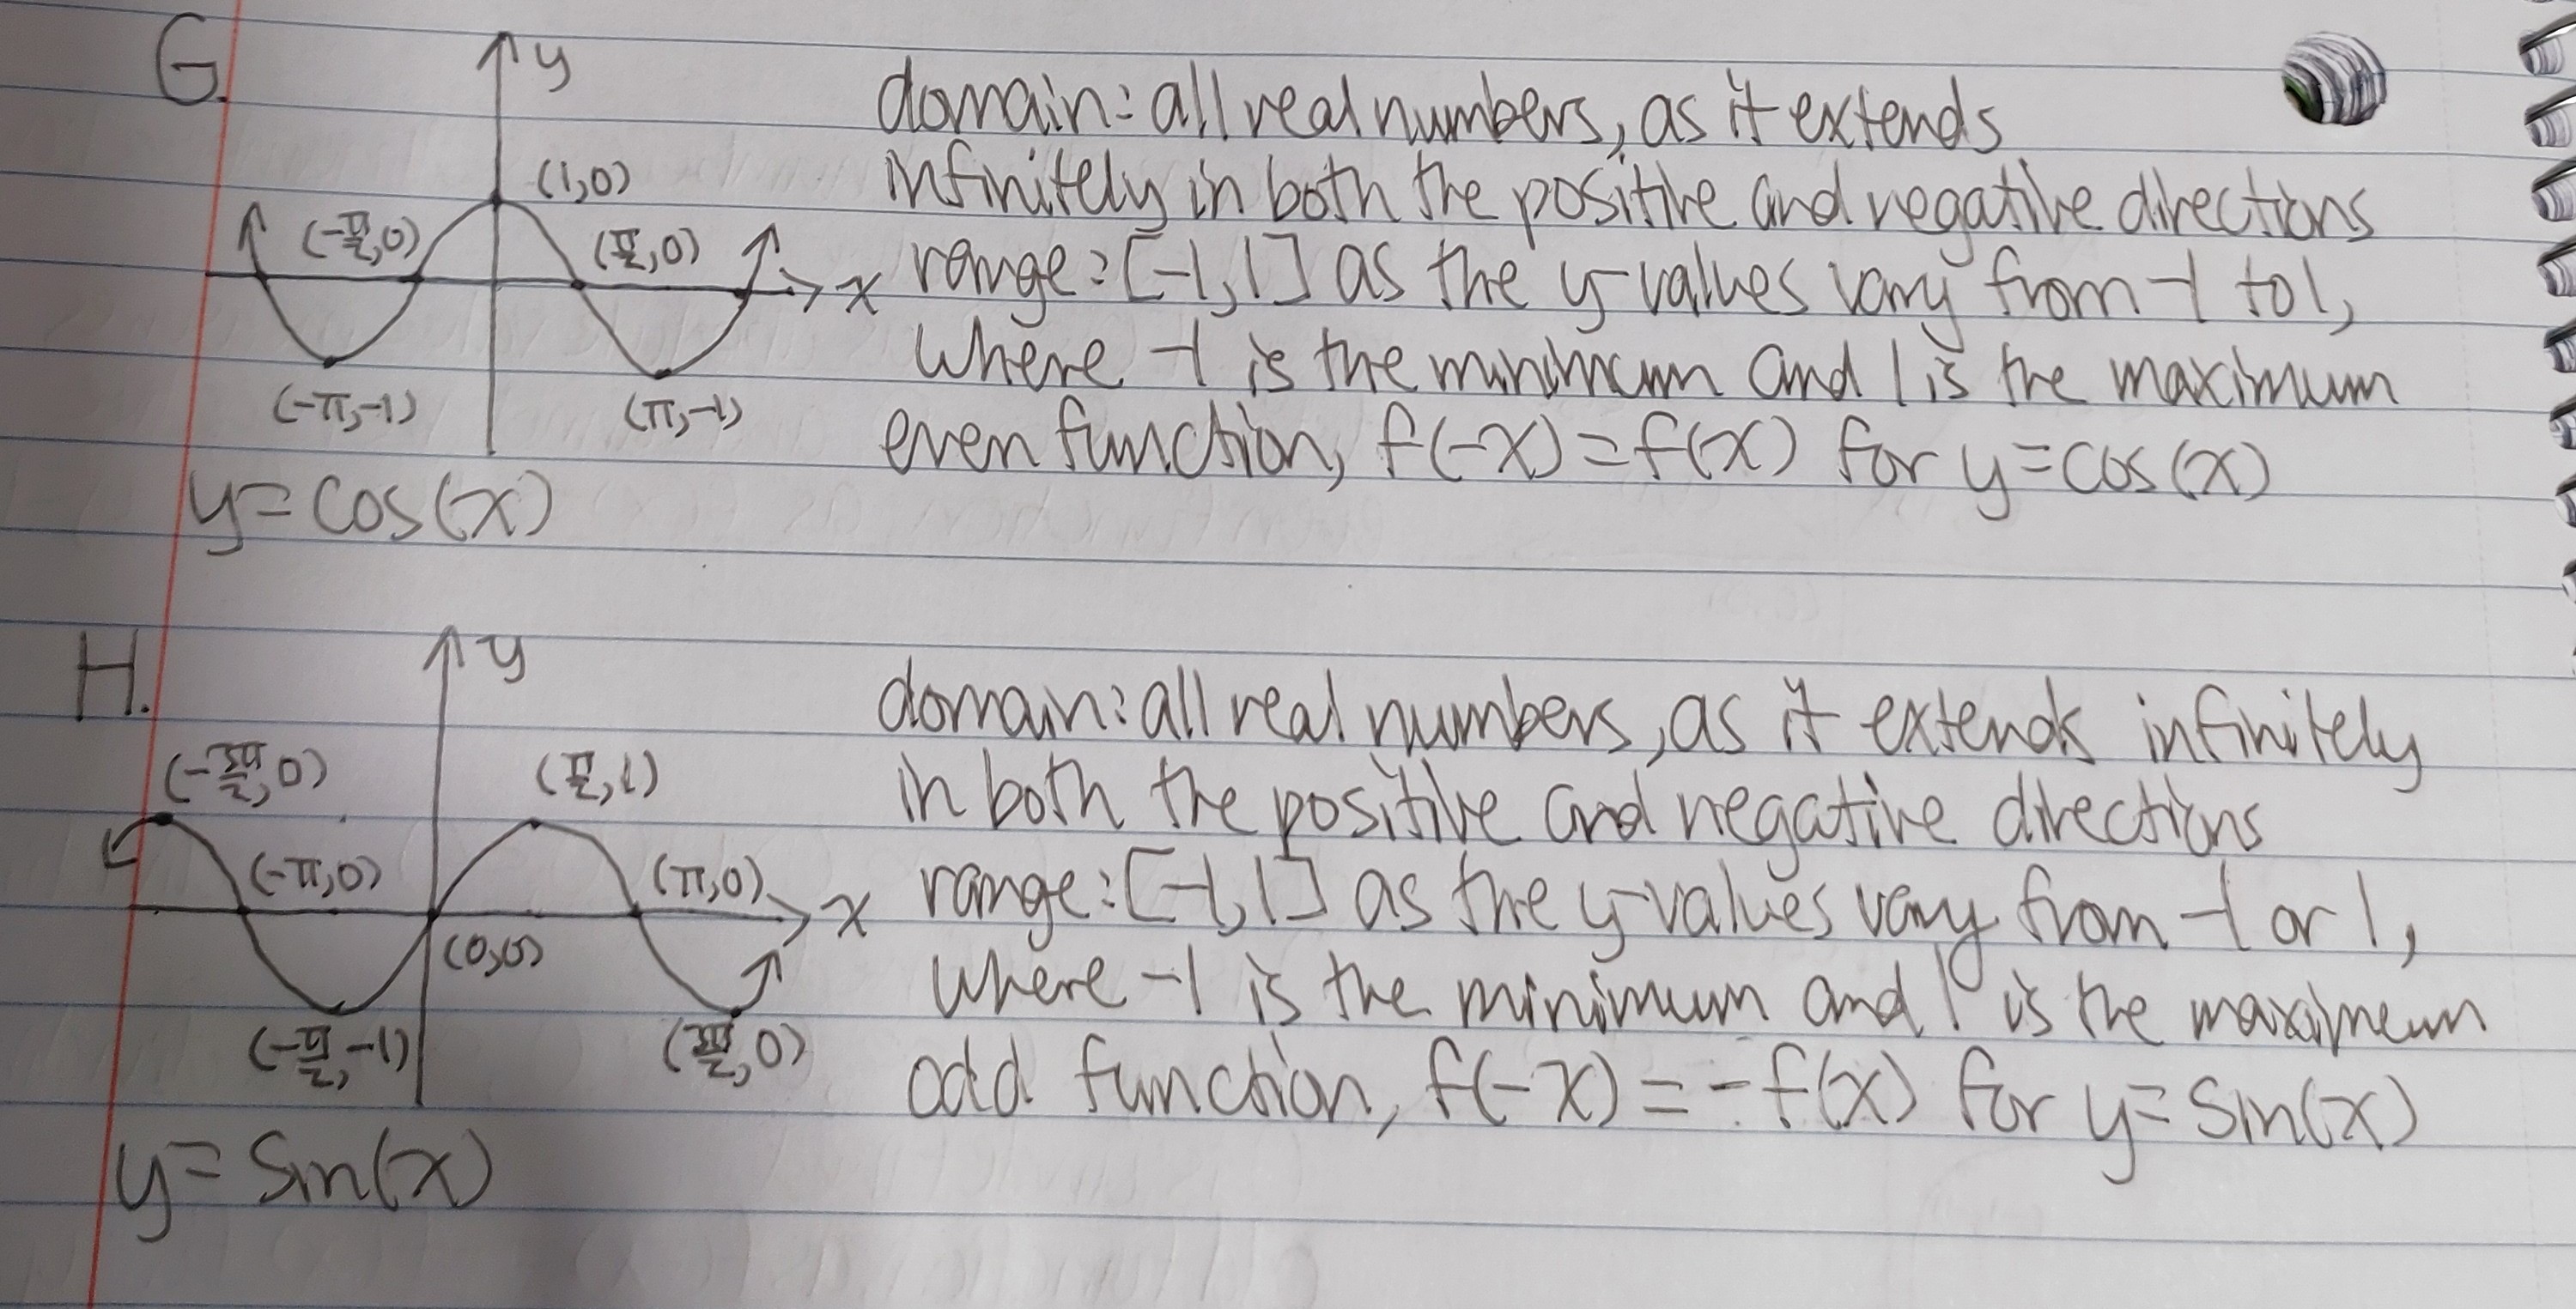 G.
y
(1,0)
(-π/2,0)
(π/2,0)
x
(-π,-1)
(π,-1)
y=cos(x)
domain: all real numbers, as it extends
infinitely in both the positive and negative directions
range: [-1,1] as the y-values vary from -1 to 1,
where -1 is the minimum and 1 is the maximum
even function, f(-x)=f(x) for y=cos(x)
H.
y
(-3π/2,0)
(π/2,1)
(-π,0)
(π,0)
x
(0,0)
(-π/2,-1)
(3π/2,0)
y=sin(x)
domain: all real numbers, as it extends infinitely
in both the positive and negative directions
range: [-1,1] as the y-values vary from -1 or 1,
where -1 is the minimum and 1 is the maximum
odd function, f(-x)=-f(x) for y=sin(x)